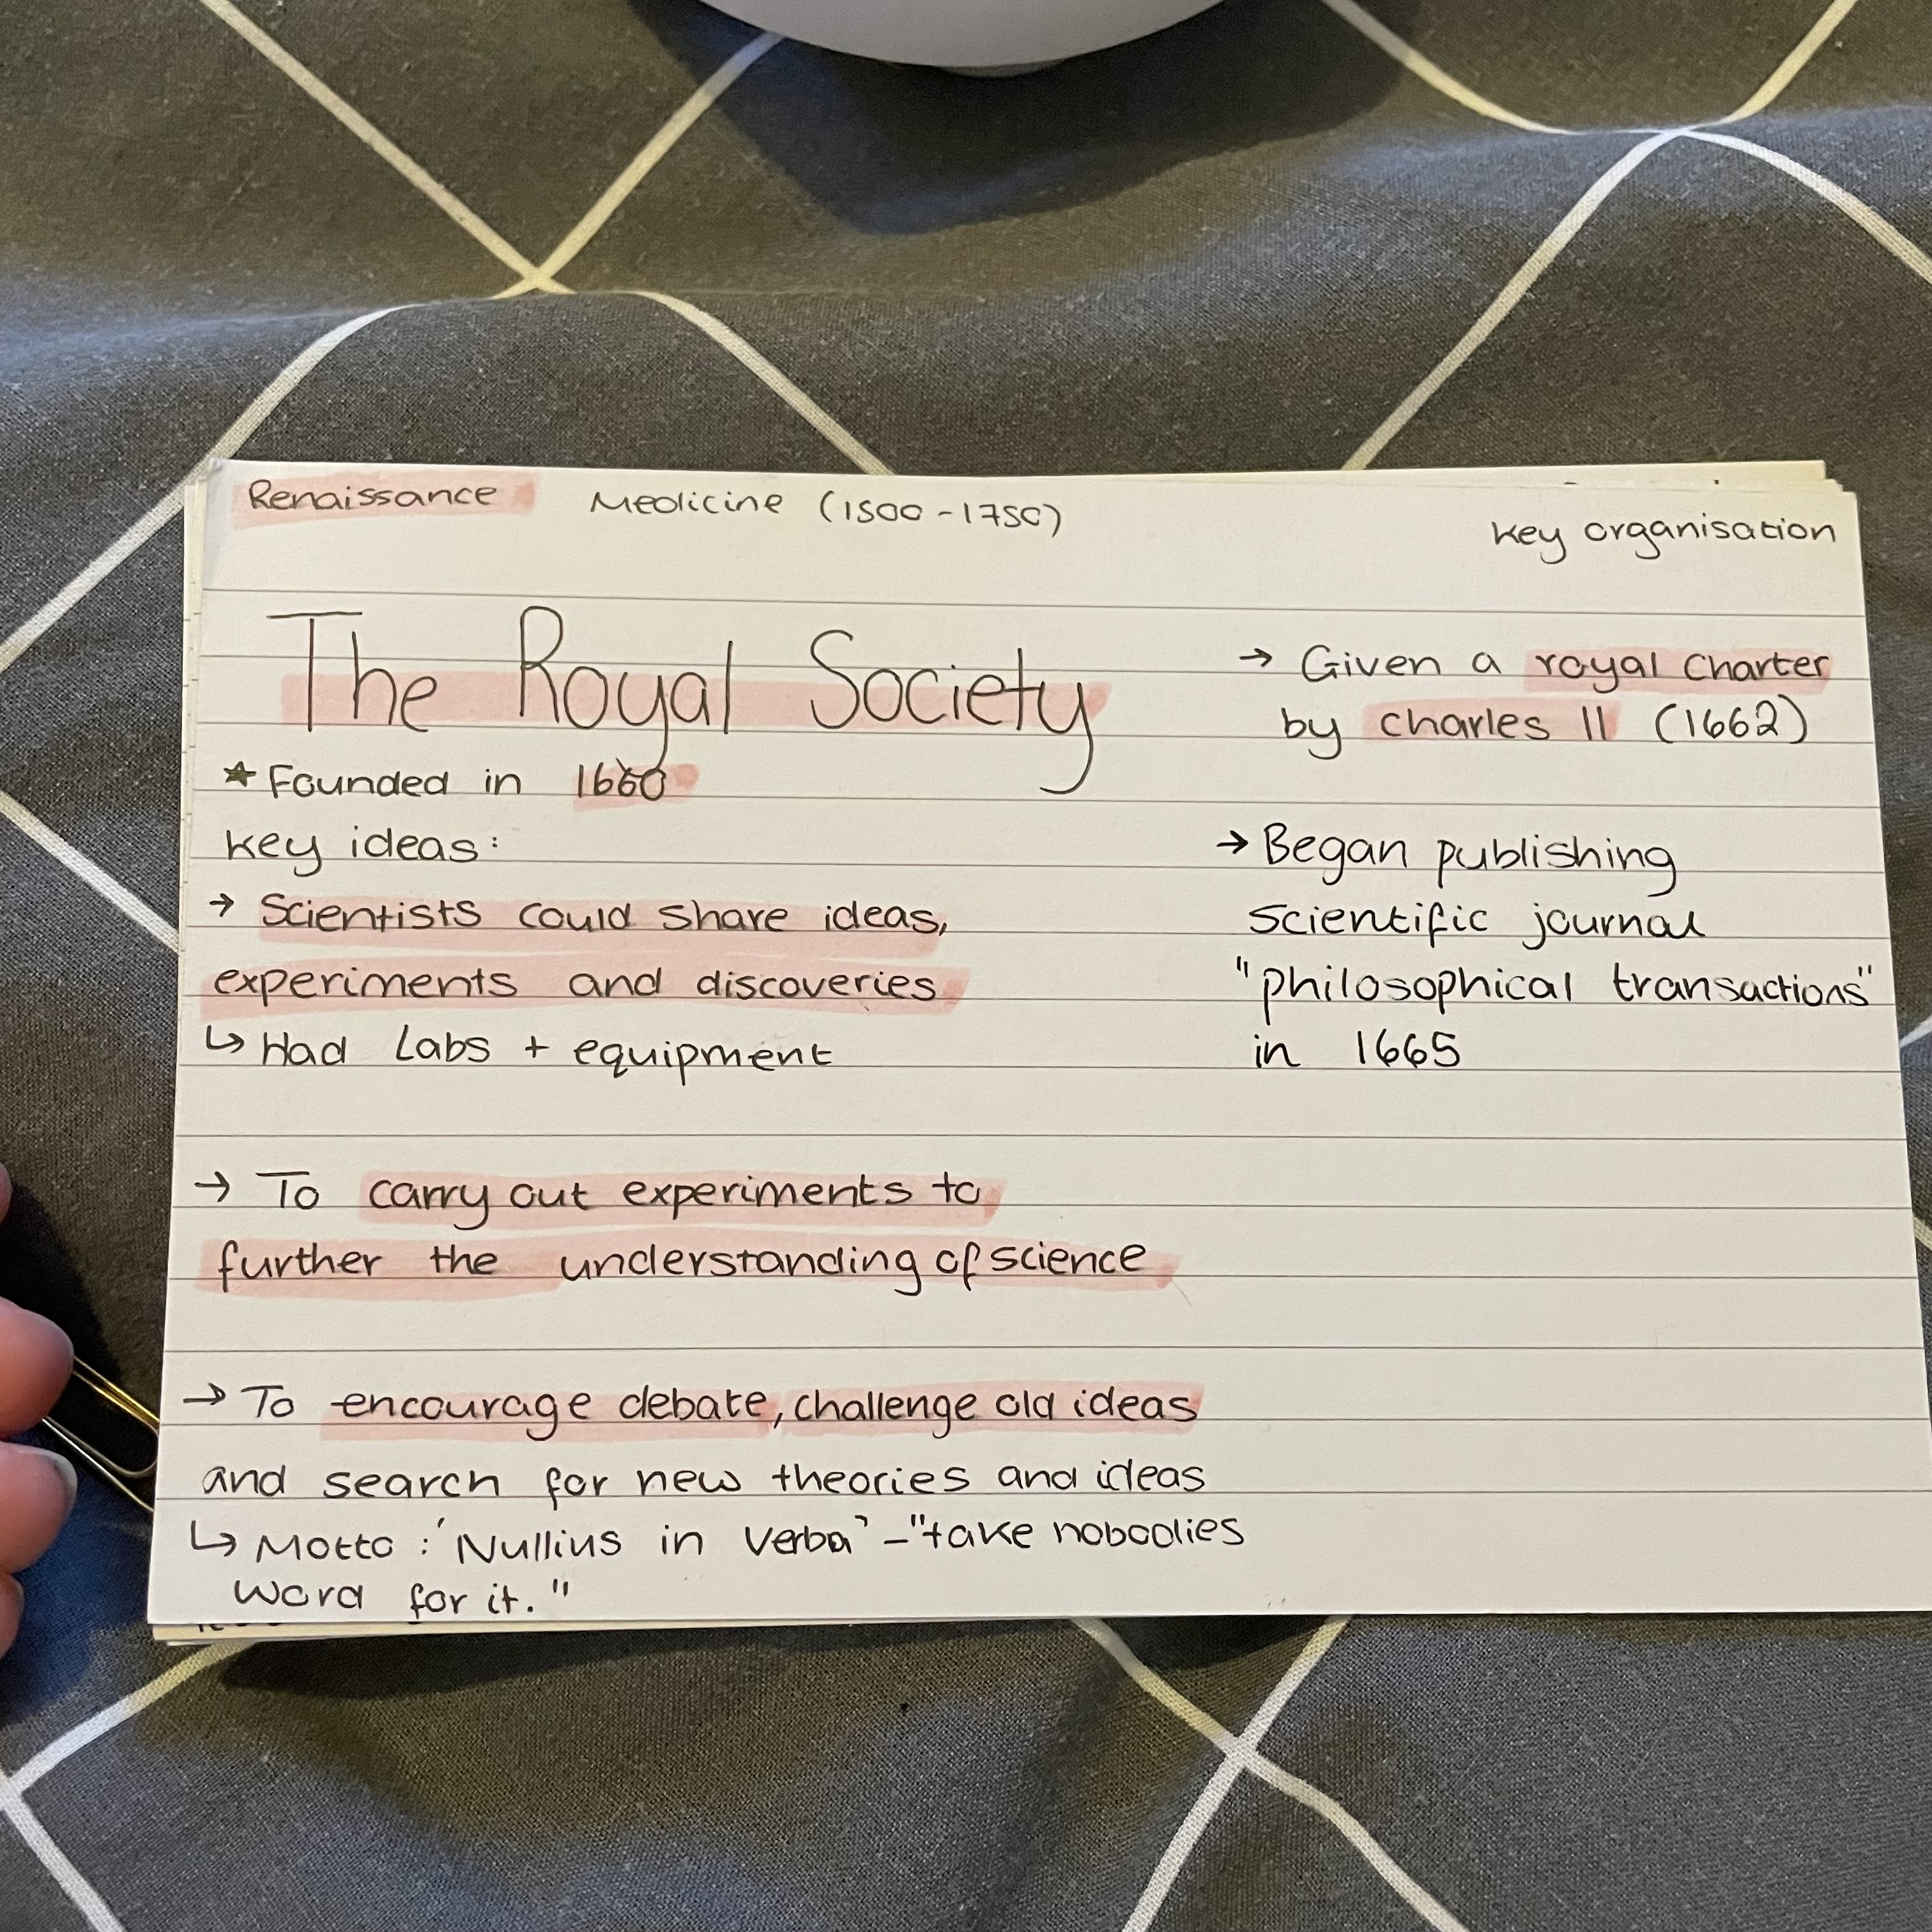 Renaissance Medicine (1500-1750)
Key organisation
The Royal Society
★ Founded in 1660
Key ideas:
→ Scientists could share ideas,
experiments and discoveries
↳ Had Labs + equipment
→ To carry out experiments to
further the understanding of science
→ To encourage debate, challenge old ideas
and search for new theories and ideas
↳ Motto : 'Nullius in Verba' - "take nobodies
word for it."
→ Given a royal charter
by Charles II (1662)
→ Began publishing
Scientific journal
"Philosophical transactions"
in 1665